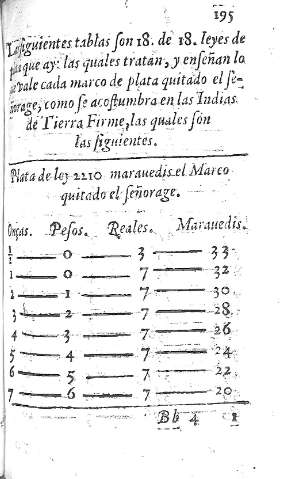 195
Las siguientes tablas son 18. de 18. leyes de
plata que ay: las quales tratan, y enseñan lo
que vale cada marco de plata quitado el se-
ñorage, como se acostumbra en las Indias
de Tierra Firme, las quales son
las siguientes.
Plata de ley 2210 marauedis el Marco
quitado el señorage.
Onças. Pesos. Reales. Marauedis.
½ 0 3 33
1 0 7 32
2 1 7 30
3 2 7 28
4 3 7 26
5 4 7 24
6 5 7 22
7 6 7 20
Bb 4 1